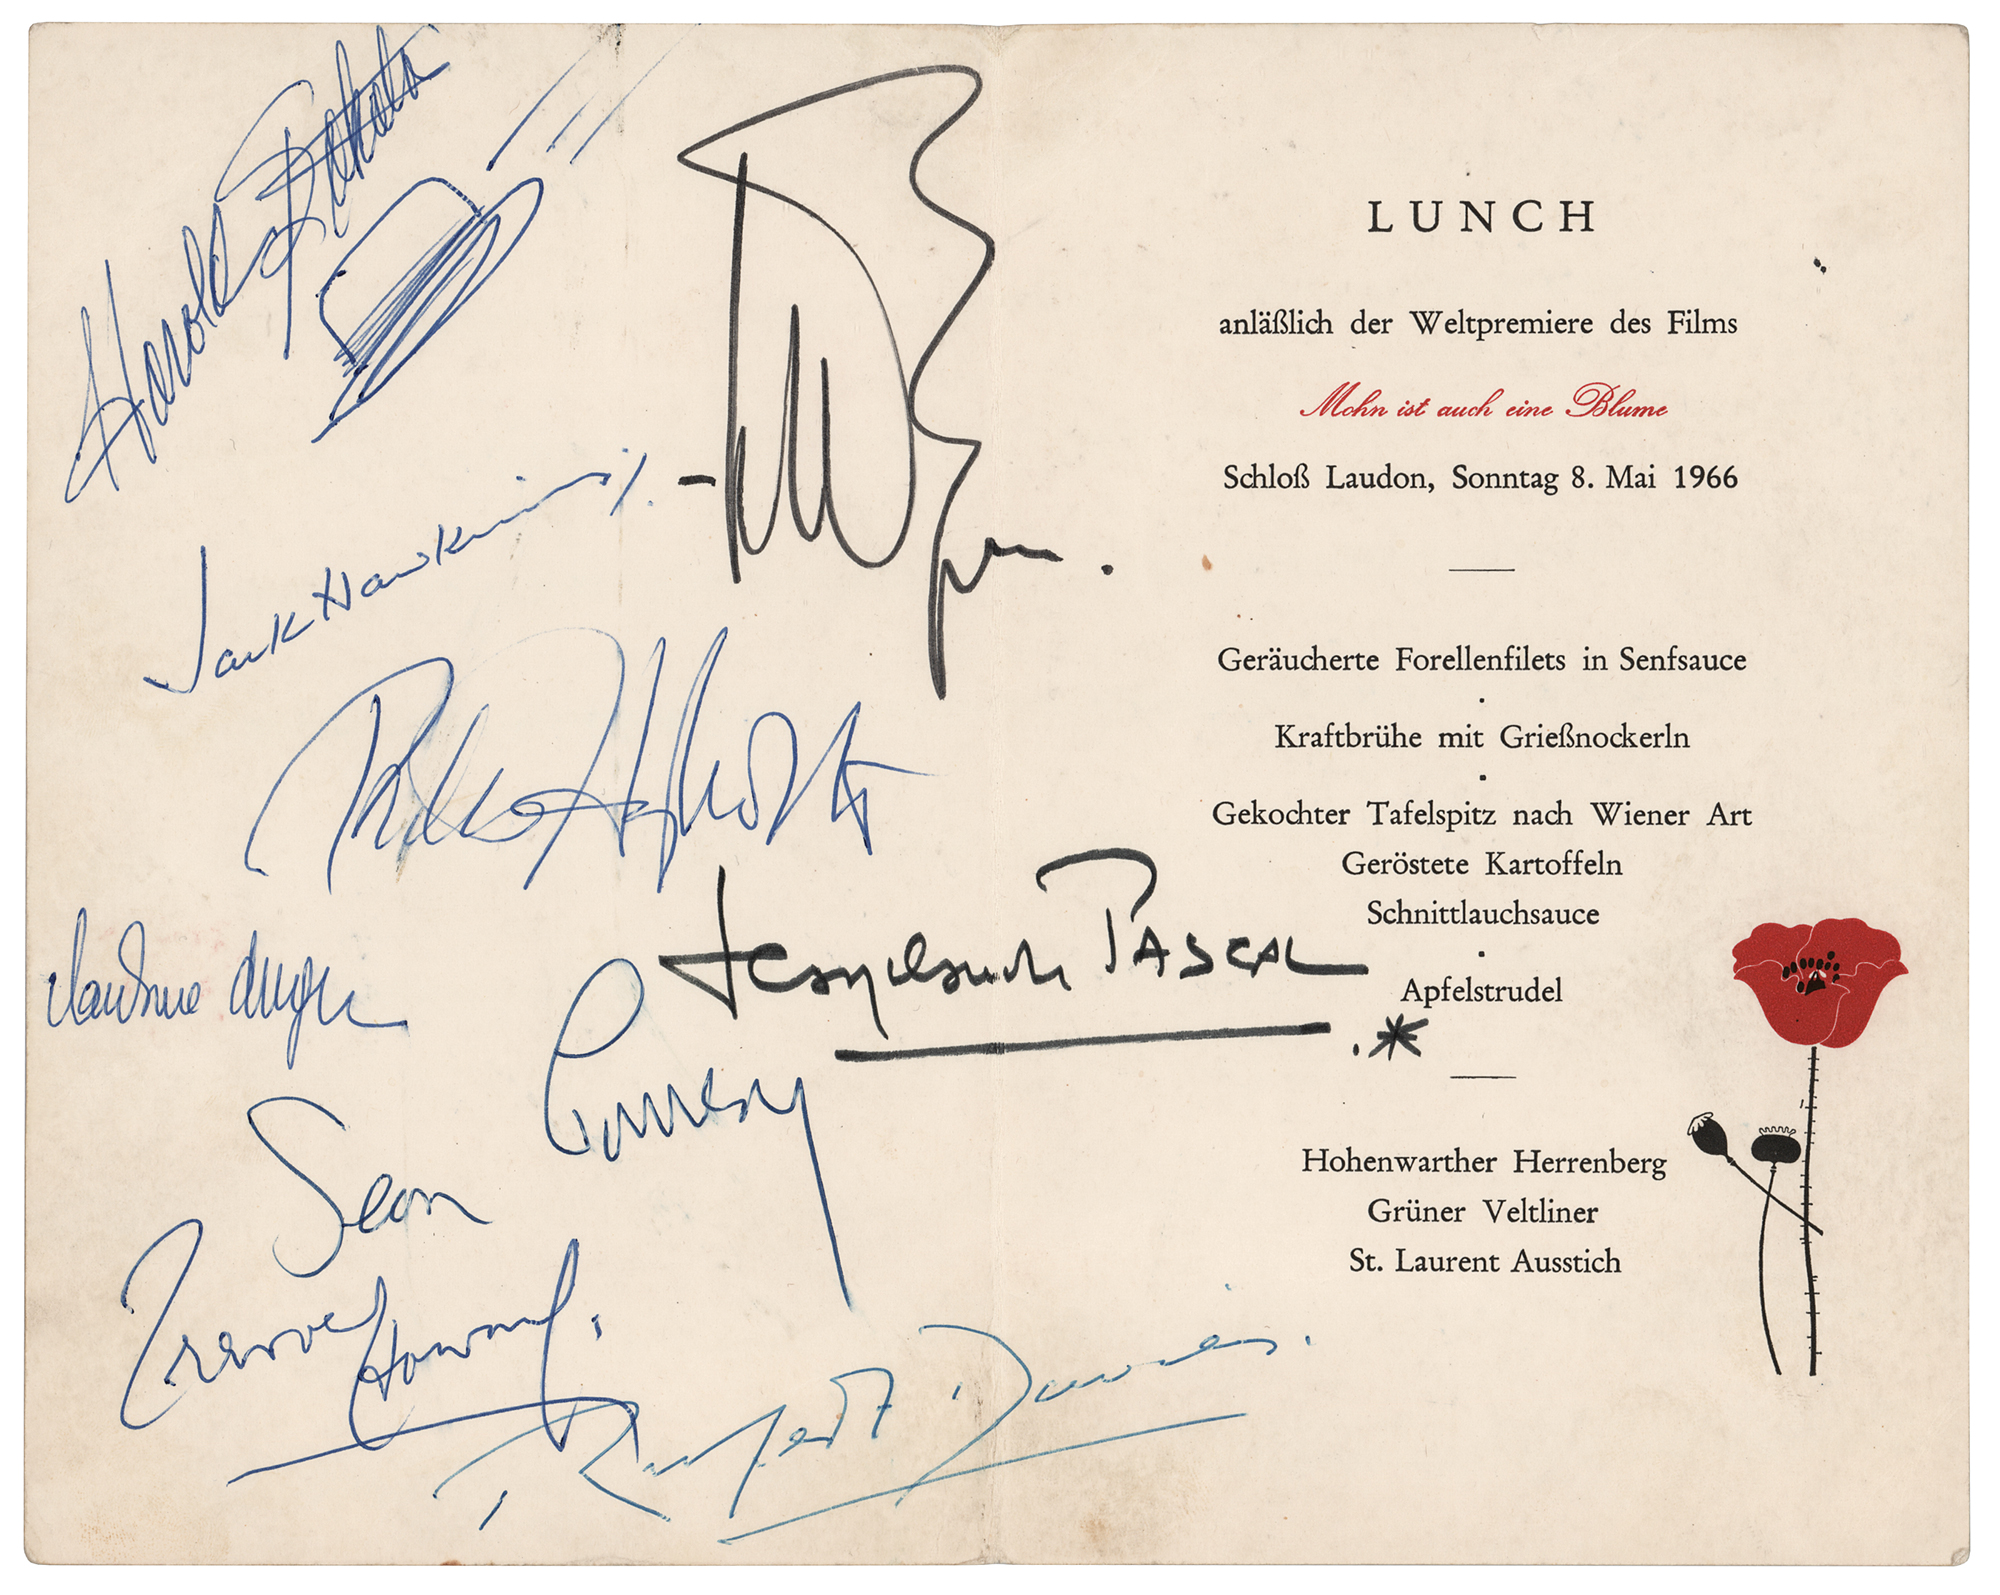 Harold Sakata
Jack Hawkins.
Jean-Claude Pascal
Sean Connery
Trevor Howard.
Rupert Davies.
LUNCH
anläßlich der Weltpremiere des Films
Mohn ist auch eine Blume
Schloß Laudon, Sonntag 8. Mai 1966
Geräucherte Forellenfilets in Senfsauce
Kraftbrühe mit Grießnockerln
Gekochter Tafelspitz nach Wiener Art
Geröstete Kartoffeln
Schnittlauchsauce
Apfelstrudel
Hohenwarther Herrenberg
Grüner Veltliner
St. Laurent Ausstich